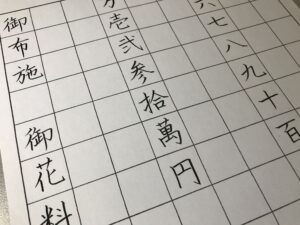 六七八九十百
壱弐参拾萬円
御布施　御花料